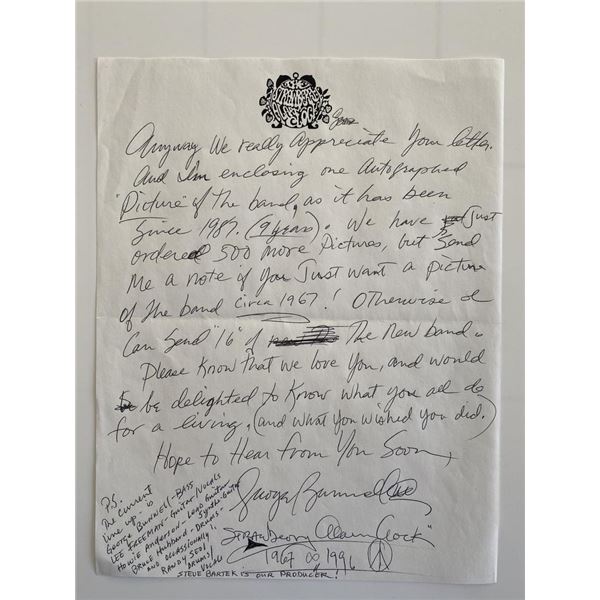 THE
STRAWBERRY
ALARM
CLOCK
Anyway We really Appreciate Your letter.
And I'm enclosing one Autographed
"Picture" of The band, as it has been
Since 1987. (9 years). We have Just
ordered 500 More Pictures, but Send
Me a note if You Just want a picture
of the band circa 1967! Otherwise I
Can Send "16" of The New band.
Please Know That we love You, and would
be delighted to Know what you all do
for a living. (and what You wished You did.)
Hope to Hear From You Soon,
George Bunnell
"Strawberry Alarm Clock"
1967 ∞ 1996
P.S.
The current
line up is
George Bunnell - BASS
LEE FREEMAN - Guitar/Vocals
Howie Anderson - Lead Guitar
Bruce Hubbard - Drums - Synthe-Guitar
AND occassionally
RANDY SEOL
DRUMS/
VOCALS
STEVE BARTEK IS OUR PRODUCER!